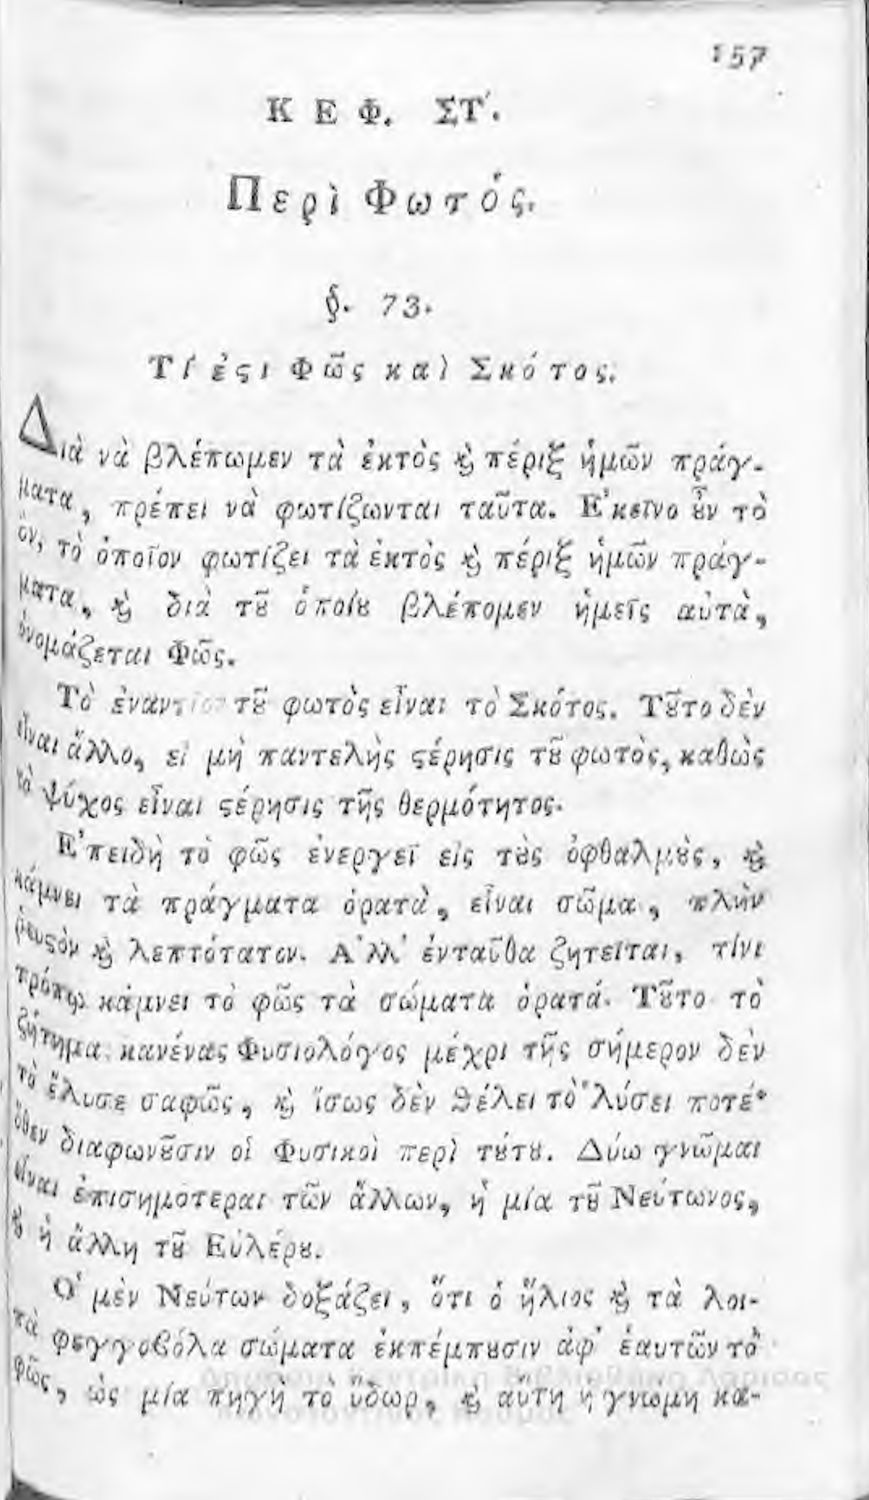 157
ΚΕΦ. ΣΤ'.
Περὶ Φωτός.
§. 73.
Τί ἐϛι Φῶς καὶ Σκότος.
Διὰ νὰ βλέπωμεν τὰ ἐκτὸς ϗ πέριξ ἡμῶν πράγ-
ματα, πρέπει νὰ φωτίζωνται ταῦτα. Ἐκεῖνο ȣ̓͂ν τὸ
ὂν, τὸ ὁποῖον φωτίζει τὰ ἐκτὸς ϗ πέριξ ἡμῶν πράγ-
ματα, ϗ διὰ τȣ͂ ὁποίȣ βλέπομεν ἡμεῖς αὐτὰ,
ὀνομάζεται Φῶς.
Τὸ ἐναντίον τȣ͂ φωτὸς εἶναι τὸ Σκότος. Τȣ͂το δὲν
εἶναι ἄλλο, εἰ μὴ παντελὴς ϛέρησις τȣ͂ φωτὸς, καθὼς
τὸ ψύχος εἶναι ϛέρησις τῆς θερμότητος.
Ἐπειδὴ τὸ φῶς ἐνεργεῖ εἰς τȣ̀ς ὀφθαλμȣ̀ς, ϗ
κάμνει τὰ πράγματα ὁρατὰ, εἶναι σῶμα, πλὴν
ῥευϛὸν ϗ λεπτότατον. Ἀλλ' ἐνταῦθα ζητεῖται, τίνι
τρόπῳ κάμνει τὸ φῶς τὰ σώματα ὁρατά. Τȣ͂το τὸ
ζήτημα κανένας Φυσιολόγος μέχρι τῆς σήμερον δὲν
τὸ ἔλυσε σαφῶς, ϗ ἴσως δὲν θέλει τὸ λύσει ποτέ·
ὅθεν διαφωνȣ͂σιν οἱ Φυσικοὶ περὶ τȣ́τȣ. Δύω γνῶμαι
εἶναι ἐπισημότεραι τῶν ἄλλων, ἡ μία τȣ͂ Νεύτωνος,
ϗ ἡ ἄλλη τȣ͂ Εὐλέρȣ.
Ὁ μὲν Νεύτων δοξάζει, ὅτι ὁ ἥλιος ϗ τὰ λοι-
πὰ φεγγοβόλα σώματα ἐκπέμπȣσιν ἀφ' ἑαυτῶν τὸ
φῶς, ὡς μία πηγὴ τὸ ὕδωρ, ϗ αὕτη ἡ γνώμη κα-
Δημόσια Κεντρική Βιβλιοθήκη Λάρισας